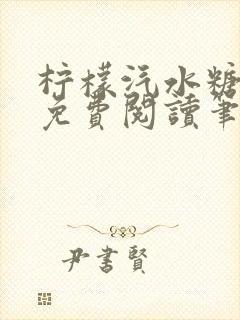 柠檬汽水糖
免費閱讀筆
尹書賢